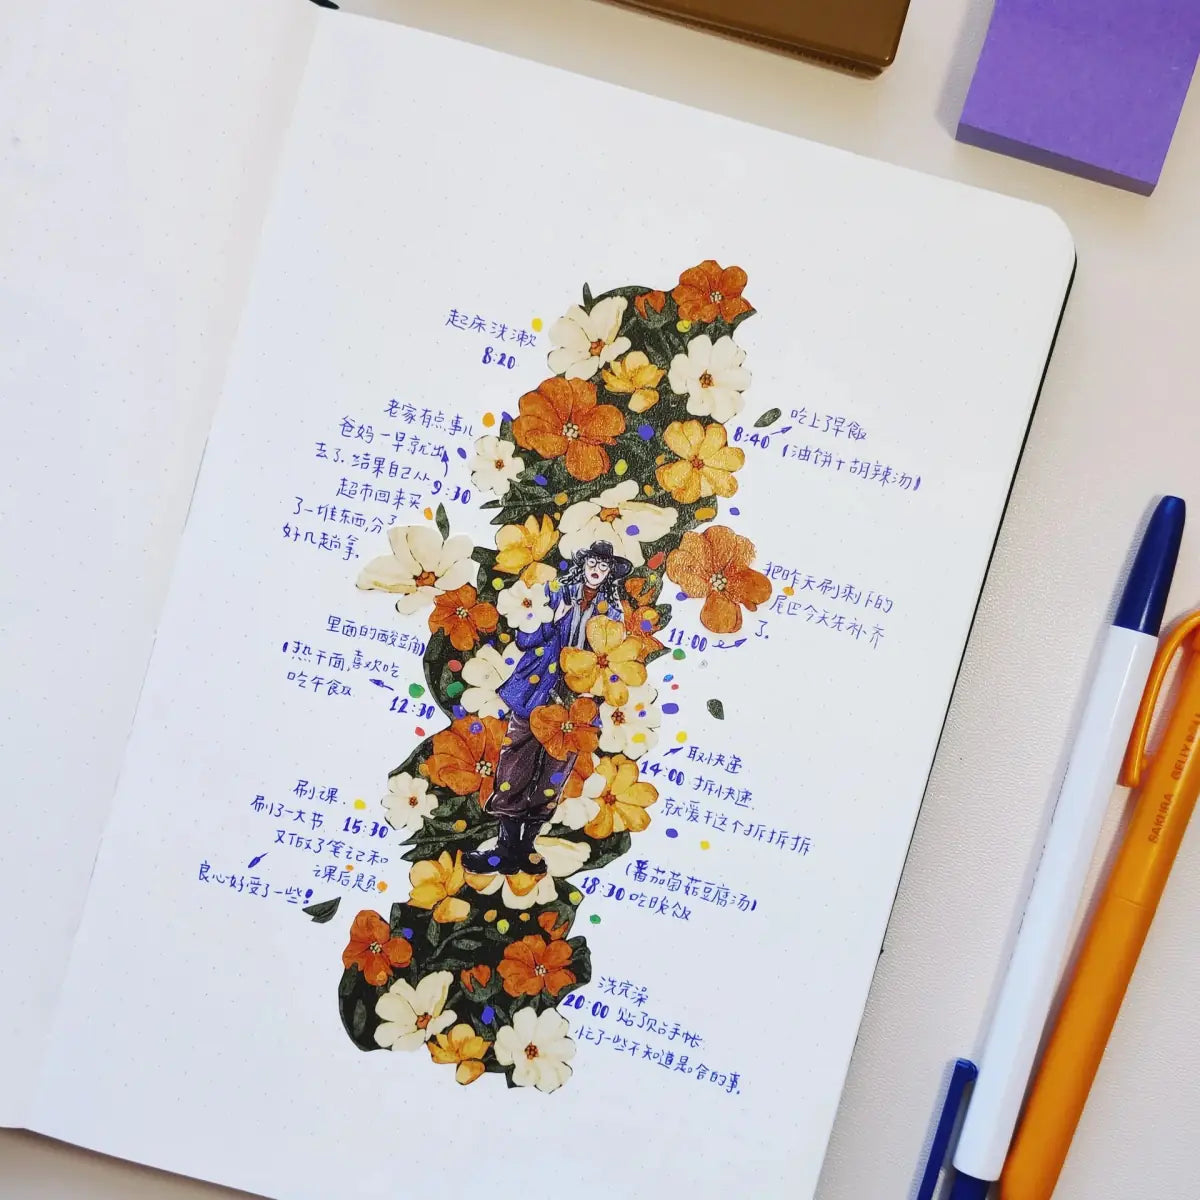 起床洗漱
8:20
吃上了早飯
8:40
(油饼+胡辣汤)
老家有点事儿
爸妈一早就出
去了.结果自己从
9:30
超市回来买
了一堆东西,分了
好几趟拿.
把昨天刷剩下的
尾巴今天先补齐
了.
11:00
里面的酸豆角)
(热干面,喜欢吃
吃午飯
12:30
取快递
14:00 拆快递.
就爱干这个拆拆拆
刷课.
刷了一大节 15:30
又做了笔记和
课后题.
良心好受了一些!
(番茄菌菇豆腐汤)
18:30 吃晚飯
洗完澡
20:00 贴了贴手帐.
忙了一些不知道是啥的事.
SAKURA GELLY ROLL